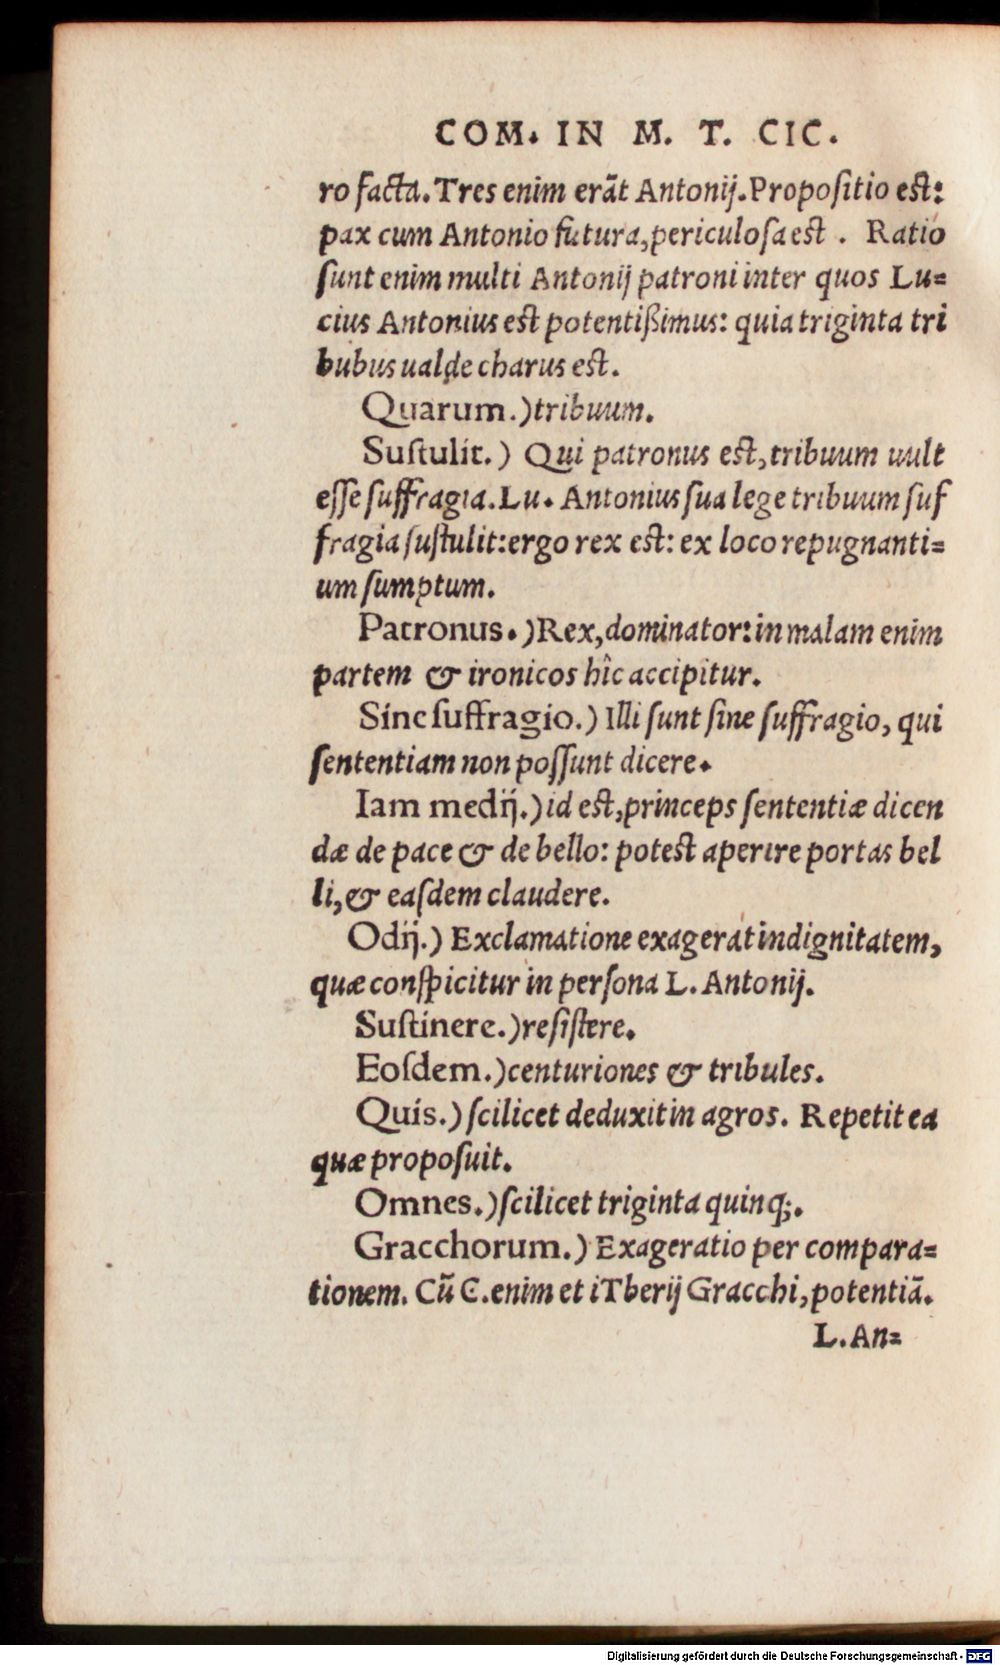 COM. IN M. T. CIC.
ro facta. Tres enim erãt Antonij. Propositio est:
pax cum Antonio futura, periculosa est . Ratio
sunt enim multi Antonij patroni inter quos Lu=
cius Antonius est potentißimus: quia triginta tri
bubus ualde charus est.
Quarum.) tribuum.
Sustulit.) Qui patronus est, tribuum uult
esse suffragia. Lu. Antonius sua lege tribuum suf
fragia sustulit: ergo rex est: ex loco repugnanti=
um sumptum.
Patronus.) Rex, dominator: in malam enim
partem & ironicos hîc accipitur.
Sine suffragio.) Illi sunt sine suffragio, qui
sententiam non possunt dicere.
Iam medij.) id est, princeps sententiæ dicen
dæ de pace & de bello: potest aperire portas bel
li, & easdem claudere.
Odij.) Exclamatione exagerat indignitatem,
quæ conspicitur in persona L. Antonij.
Sustinere.) resistere.
Eosdem.) centuriones & tribules.
Quis.) scilicet deduxit in agros. Repetit ea
quæ proposuit.
Omnes.) scilicet triginta quinq;.
Gracchorum.) Exageratio per compara=
tionem. Cũ C. enim et iTberij Gracchi, potentiã.
L. An=
Digitalisierung gefördert durch die Deutsche Forschungsgemeinschaft - DFG